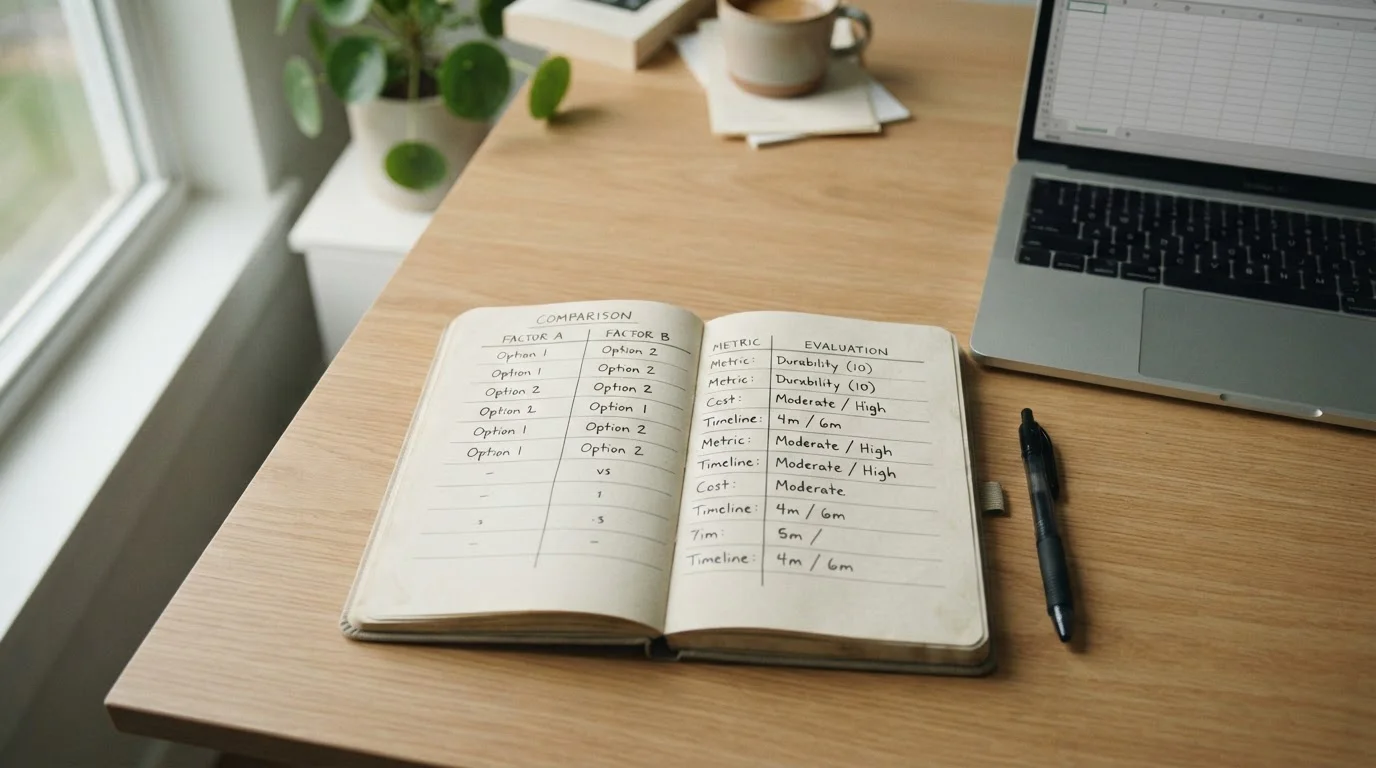 COMPARISON
FACTOR A FACTOR B
Option 1 Option 2
Option 1 Option 2
Option 2 Option 2
Option 2 Option 1
Option 1 Option 2
Option 1 Option 2
- vs
- 1
3 .3
- -
METRIC EVALUATION
Metric: Durability (10)
Metric: Durability (10)
Cost: Moderate / High
Timeline: 4m / 6m
Metric: Moderate / High
Timeline: Moderate / High
Cost: Moderate
Timeline: 4m / 6m
7im: 5m /
Timeline: 4m / 6m